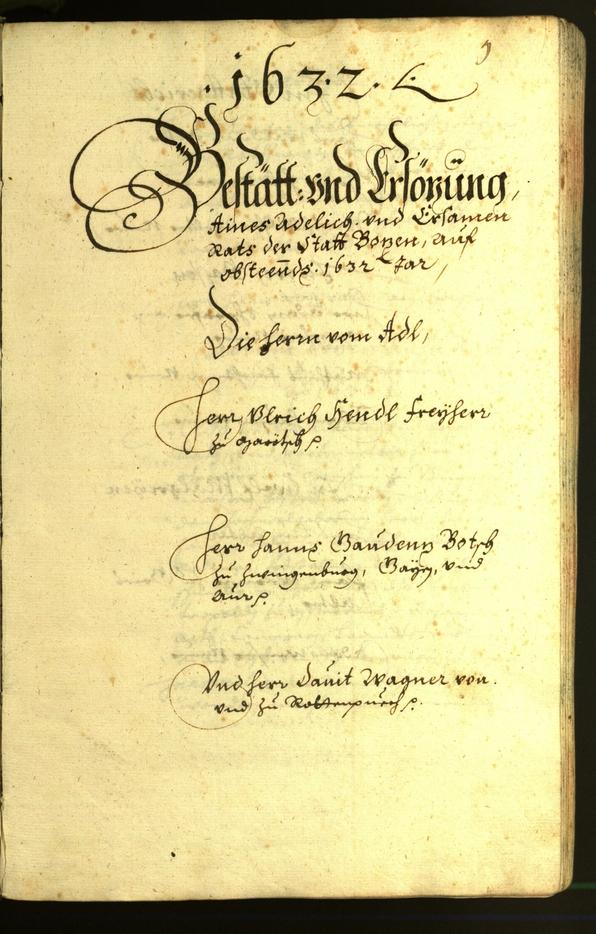 9
1632.
Bestätt: vnd Ersözung,
Aines Adelich. vnd Ersamen
Rats der Statt Bozen, auf
obsteends. 1632 Jar,
Die herrn vom Adl,
Herr Vlrich Hendl Freyherr
zu
Herr Hanns Gaudenz Botsch
zu Zwingenburg, Gayen, vnd
Aur
Vnd herr Dauit Wagner von.
vnd zu Rottenpuech